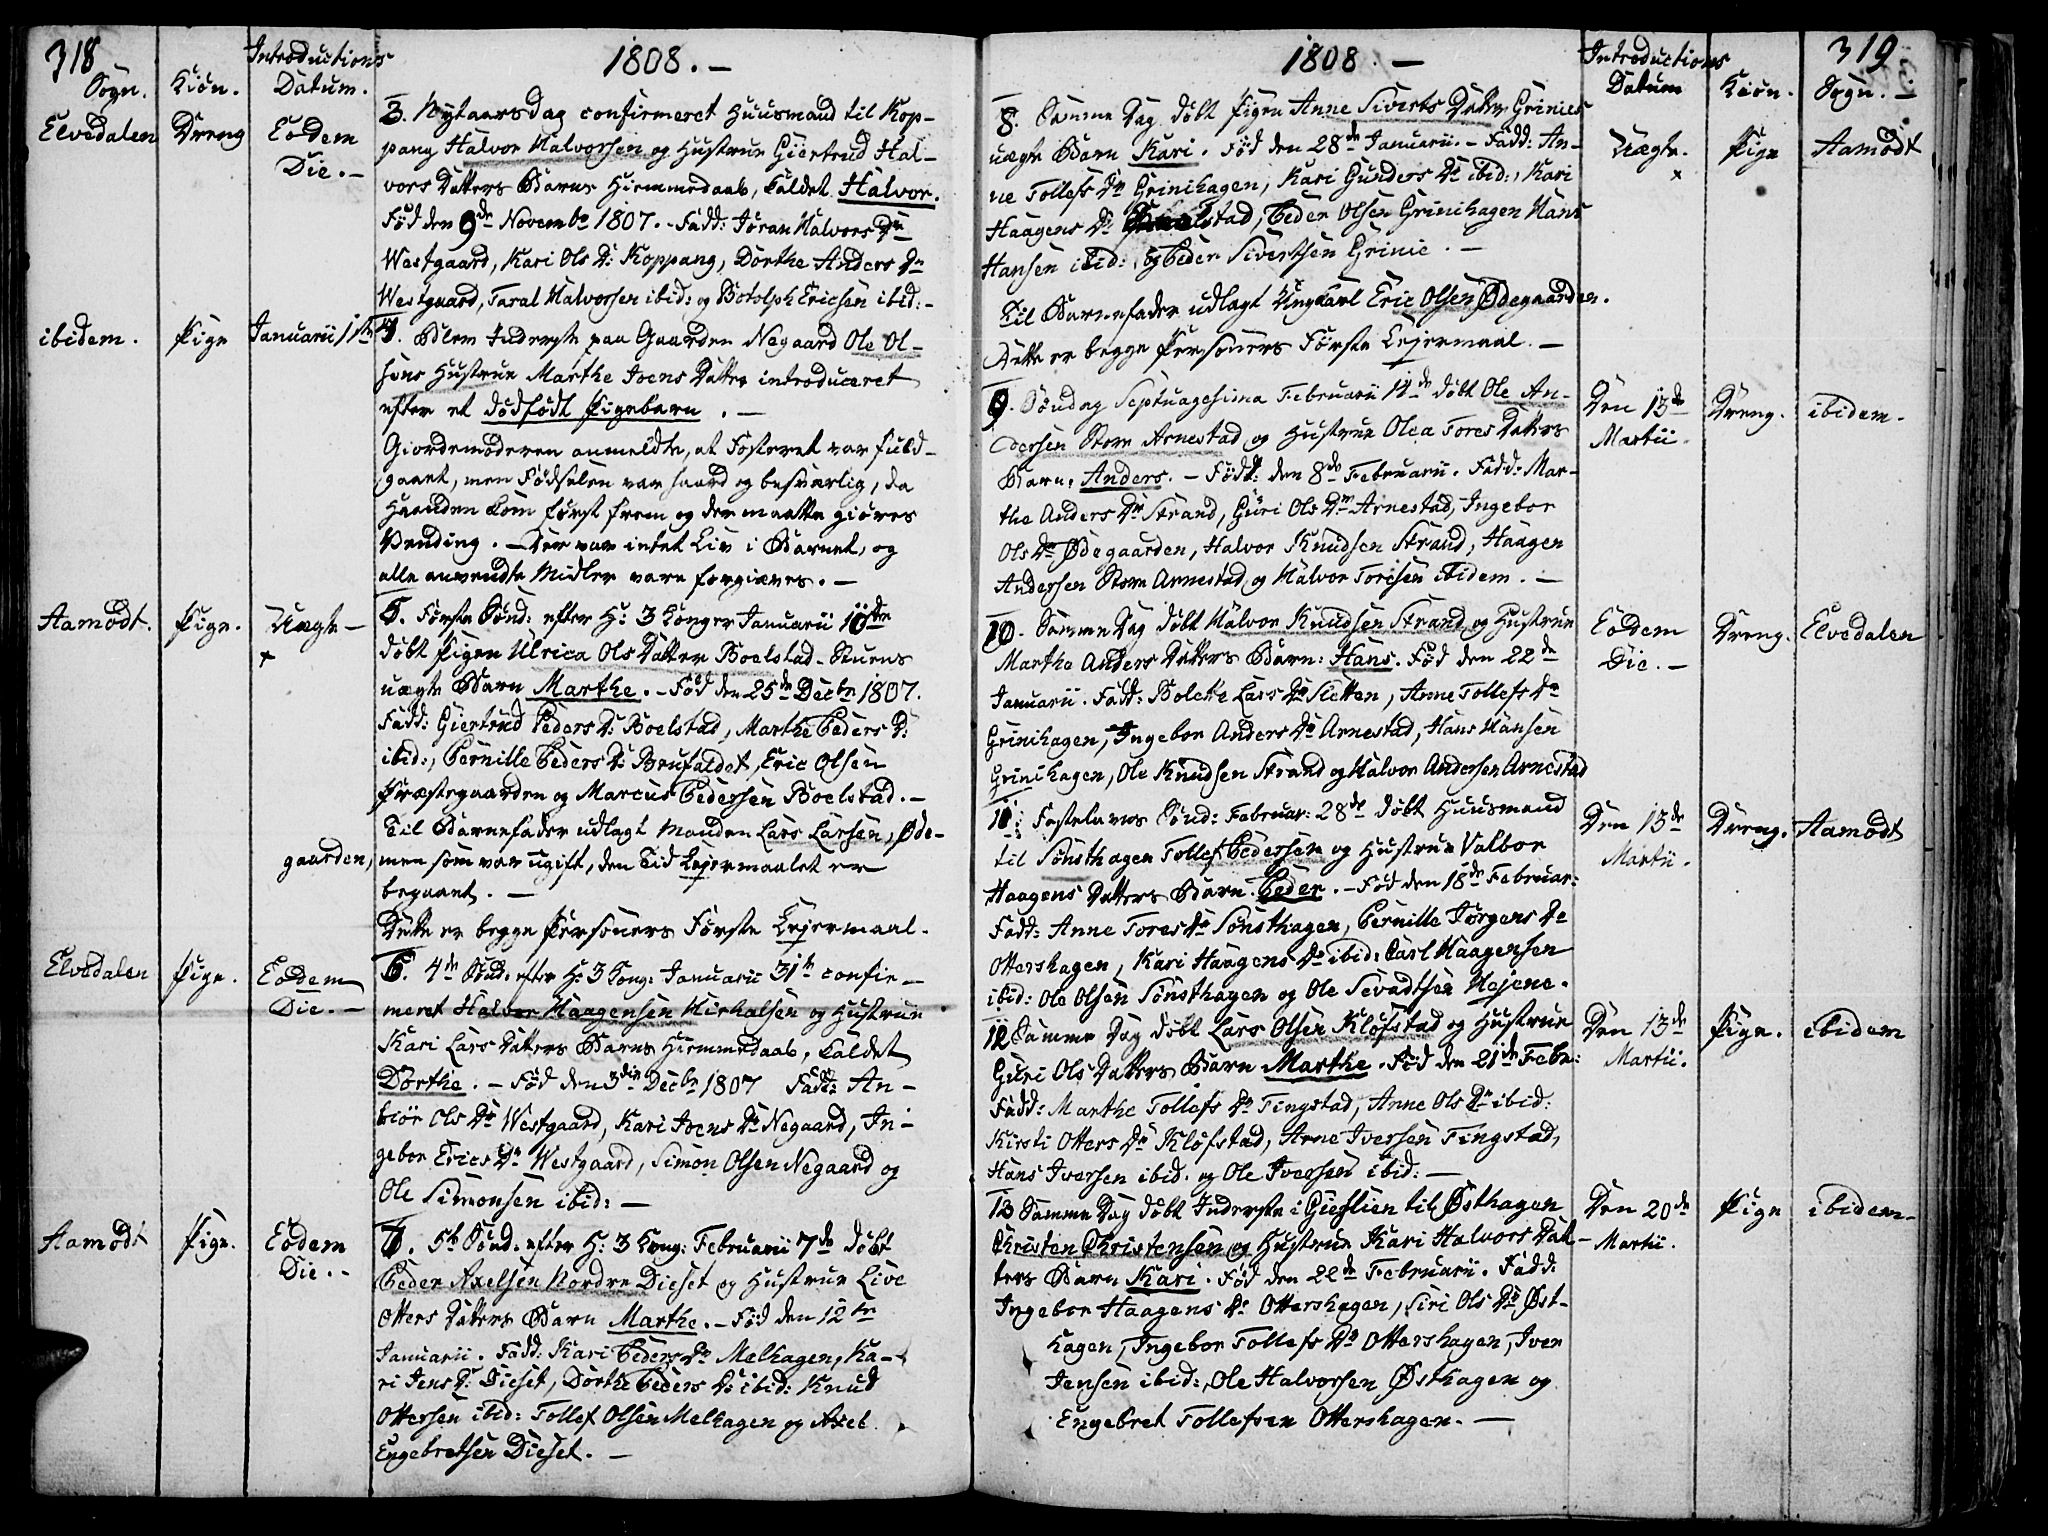 318
1808. –
Sogn. Kiön. Introductions Datum.
Elvedalen Dreng Eodem Die. –
3. Nytaarsdag confirmeret Huusmand til Kop-
pang Halvor Halvorsen og Hustrue Giertrud Hal-
vors Datters Barns Hiemmedaab, kaldet Halvor.
Föd den 9de Novembr 1807. – Fadd: Jöran Halvors Dr
Westgaard, Kari Ols D: Koppang, Dorthe Anders Dr
Westgaard, Taral Halvorsen ibid: og Botolph Ericsen ibid: –
ibidem. Pige Januarii 1ste
4. Blev Inderste paa Gaarden Negaard Ole Ol-
sens Hustrue Marthe Joens Datter introduceret
efter et dödfödt Pigebarn. –
Giordemoderen anmeldte, at Fosteret var fuld-
gaaet, men Födselen var haard og besværlig, da
Haanden kom först frem og der maatte giöres
Vending. – Der var intet Liv i Barnet, og
alle anvendte Midler vare forgiæves. –
Aamodt. Pige. Uægte –
5. Förste Sönd: efter H: 3 Konger Januarii 10de
döbt Pigen Ulrica Ols Datter Boelstad-Stuens
uægte Barn Marthe. – Föd den 25de Decbr 1807.
Fadd: Giertrud Peders D: Boelstad, Marthe Peders D:
ibid:, Pernille Peders D: Brufaldet, Eric Olsen
Præstegaarden og Marcus Pedersen Boelstad. –
Til Barnefader udlagt Manden Lars Larsen, Øde-
gaarden, men som var ugift, den Tid Lejermaalet er
begaaet. –
Dette er begge Personers Förste Lejermaal.
Elvedalen Pige. Eodem Die. –
6. 4de Sönd: efter H: 3 Kong: Januarii 31te confir-
meret Halvor Haagensen Mickalsen og Hustrue
Kari Lars Datters Barns Hiemmedaab, kaldet
Dorthe. – Föd den 3die Decbr 1807 Fadd: An-
biör Ols Dr Westgaard, Kari Joens Dr Negaard, In-
gebor Erics Dr Westgaard, Simon Olsen Negaard og
Ole Simonsen ibid: –
Aamodt Pige. Eodem Die. –
7. 5te Sönd. efter H: 3 Kong: Februarii 7de döbt
Peder Axelsen Nordre Dieset og Hustrue Live
Otters Datters Barn Marthe. – Föd den 12te
Januarii. Fadd: Kari Peders Dr Melhagen, Ka-
ri Jens D: Dieset, Dorthe Peders D: ibid: Knud
Ottersen ibid: Tollef Olsen Melhagen og Axel
Engebretsen Dieset. –
1808. –
319
Introductions Datum Kiön. Sogn. –
8. Samme Dag döbt Pigen Anne Siverts Datter Grinies
uægte Barn Kari. Föd den 28de Januarii. – Fadd: An-
ne Tollefs Dr Grinihagen, Kari Gunders Dr ibid:, Kari
Haagens D: stad, Peder Olsen Grinihagen Hans
Hansen ibid: og Peder Sivertsen Grinie. –
Til Barnefader udlagt Ungkarl Eric Olsen Ødegaarden.
Dette er begge Personers Förste Lejermaal. –
Uægte. Pige Aamodt
9. Söndag Septuagesima Februarii 14de döbt Ole An-
dersen Store Arnestad og Hustrue Olea Tores Datters
Barn, Anders. – Födt: den 8de Februarii. Fadd: Mar-
the Anders Dr Strand, Guri Ols Dr Arnestad, Ingebor
Ols Dr Ødegaarden, Halvor Knudsen Strand, Haagen
Andersen Store Arnestad og Halvor Toresen ibidem. –
Den 13de Martii. Dreng. ibidem.
10. Samme Dag döbt Halvor Knudsen Strand og Hustrue
Marthe Anders Datters Barn: Hans. Föd den 22de
Januarii. Fadd: Bolette Lars Dr Sletten, Anne Tollefs Dr
Grinihagen, Ingebor Anders Dr Arnestad, Hans Hansen
Grinihagen, Ole Knudsen Strand og Halvor Andersen Arnestad
Eodem Die. – Dreng. Elvedalen
11. Fastelavns Sönd: Februar: 28de döbt Huusmand
til Sönsthagen Tollef Pedersen og Hustrue Valbor
Haagens Datters Barn. Peder. – Föd den 18de Februar:
Fadd: Anne Tores Dr Sönsthagen, Pernille Jörgens Dr
Ottershagen, Kari Haagens Dr ibid: Carl Haagensen
ibid: Ole Olsen Sönsthagen og Ole Sevadtsen Hejene.
Den 13de Martii. Dreng. Aamodt
12 Samme Dag döbt Lars Olsen Klöfstad og Hustrue
Guri Ols Datters Barn Marthe. Föd den 21de Febr:
Fadd: Marthe Tollefs Dr Tingstad, Anne Ols Dr ibid:
Kirsti Otters Dr Klöfstad, Arne Iversen Tingstad,
Hans Iversen ibid. og Ole Iversen ibid: –
Den 13de Martii. Pige. ibidem
13 Samme Dag döbt Inderste i Gieslien til Østhagen
Christen Christensen og Hustrue Kari Halvors Dat-
ters Barn Kari. Föd den 22de Februarii. Fadd:
Ingebor Haagens Dr Ottershagen, Siri Ols Dr Øst-
hagen, Ingebor Tollefs Dr Ottershagen, Iver
Jensen ibid:, Ole Halvorsen Østhagen og
Engebret Tollefsen Ottershagen. –
Den 20de Martii. Pige ibidem –